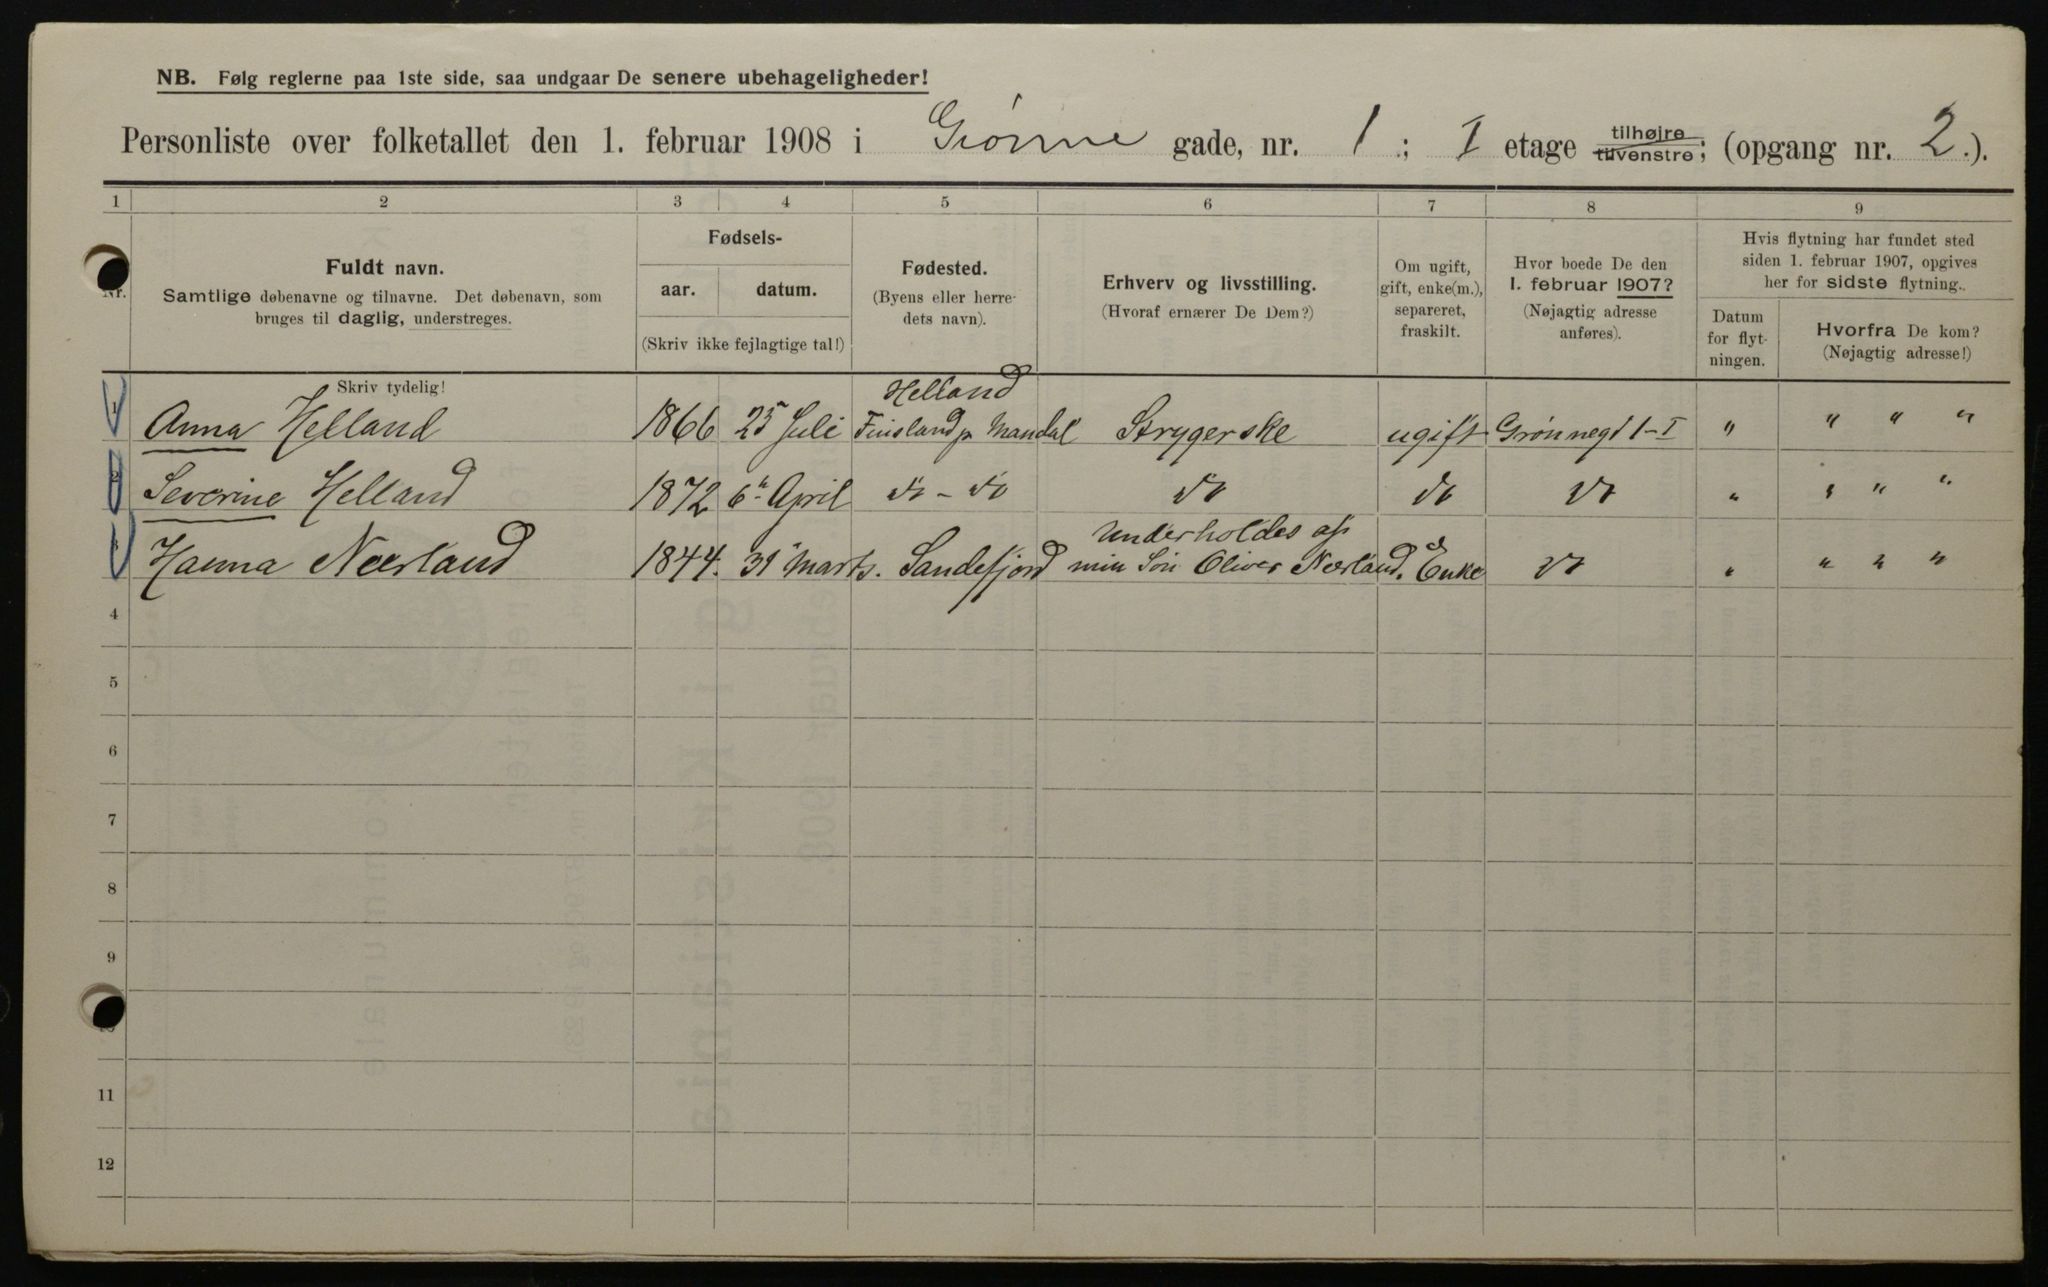 NB. Følg reglerne paa 1ste side, saa undgaar De senere ubehageligheder!
Personliste over folketallet den 1. februar 1908 i Grönne gade, nr. 1 ; I etage tilhøjre tilvenstre; (opgang nr. 2.).
1 2 3 4 5 6 7 8 9
Nr.
Fuldt navn.
Samtlige døbenavne og tilnavne. Det døbenavn, som
bruges til daglig, understreges.
Skriv tydelig!
Fødsels-
aar. datum.
(Skriv ikke fejlagtige tal!)
Fødested.
(Byens eller herre-
dets navn).
Erhverv og livsstilling.
(Hvoraf ernærer De Dem?)
Om ugift,
gift, enke(m.),
separeret,
fraskilt.
Hvor boede De den
1. februar 1907?
(Nøjagtig adresse
anføres).
Hvis flytning har fundet sted
siden 1. februar 1907, opgives
her for sidste flytning.
Datum
for flyt-
ningen.
Hvorfra De kom?
(Nøjagtig adresse!)
Helland
1 Anna Helland 1866 25 Juli Finsland p Mandal Strygerske ugift Grönnegd 1-I " " " "
2 Severine Helland 1872 6 April do - do do do do " " " "
Underholdes af
3 Hanna Neerland 1844. 31 Marts. Sandefjord min Sön Oliver Neerland. Enke do " " " "
4
5
6
7
8
9
11
12